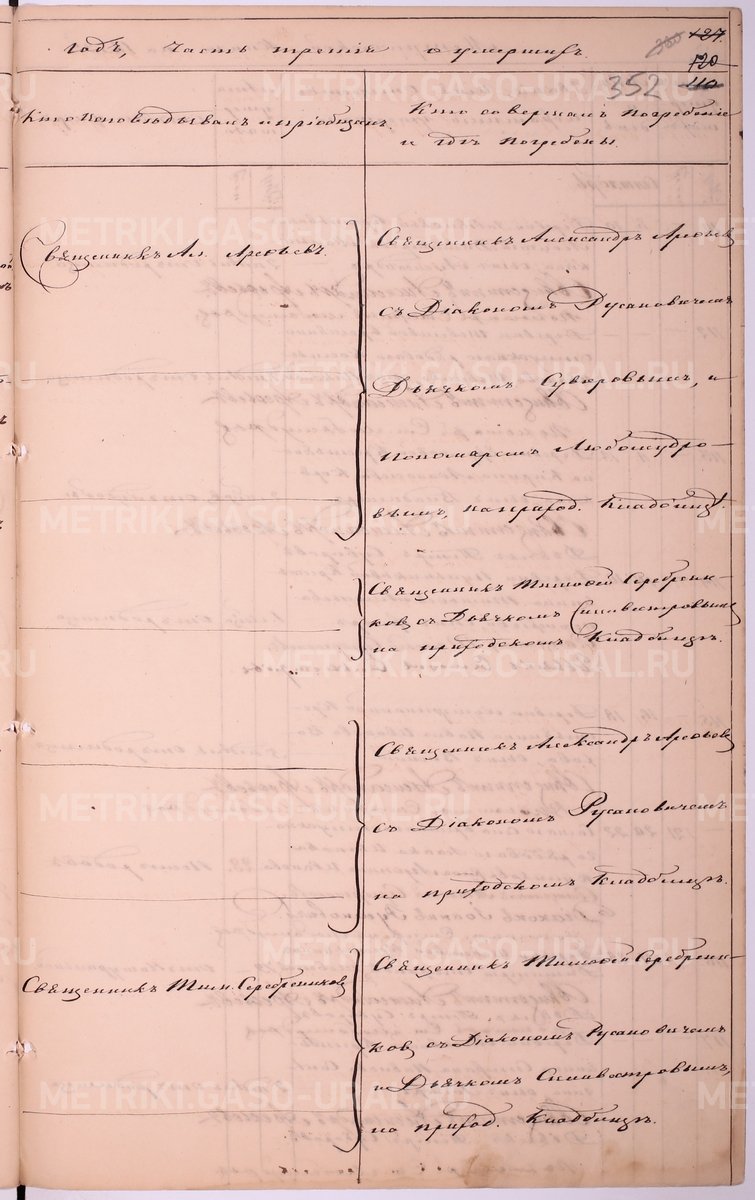 127.
380
120
352 110
годъ, часть третія о умершихъ.
Кто исповѣдывалъ и пріобщалъ.
Кто совершалъ погребеніе
и гдѣ погребены.
Священникъ Ал. Арефьевъ.
Священникъ Александръ Арефьевъ
съ Діакономъ Русановичемъ
Дьячкомъ Суворовымъ, и
Пономаремъ Любомудро-
вымъ, на приход. Кладбищѣ.
Священникъ Тимофей Серебрени-
ковъ съ Дьячкомъ Сильвестровымъ
на приходскомъ Кладбищѣ.
Священникъ Александръ Арефьевъ
съ Діакономъ Русановичемъ
на приходскомъ Кладбищѣ.
Священникъ Тим. Серебрениковъ
Священникъ Тимофей Серебрени-
ковъ съ Діакономъ Русановичемъ
и Дьячкомъ Сильвестровымъ,
на приход. Кладбищѣ.
METRIKI.GASO-URAL.RU